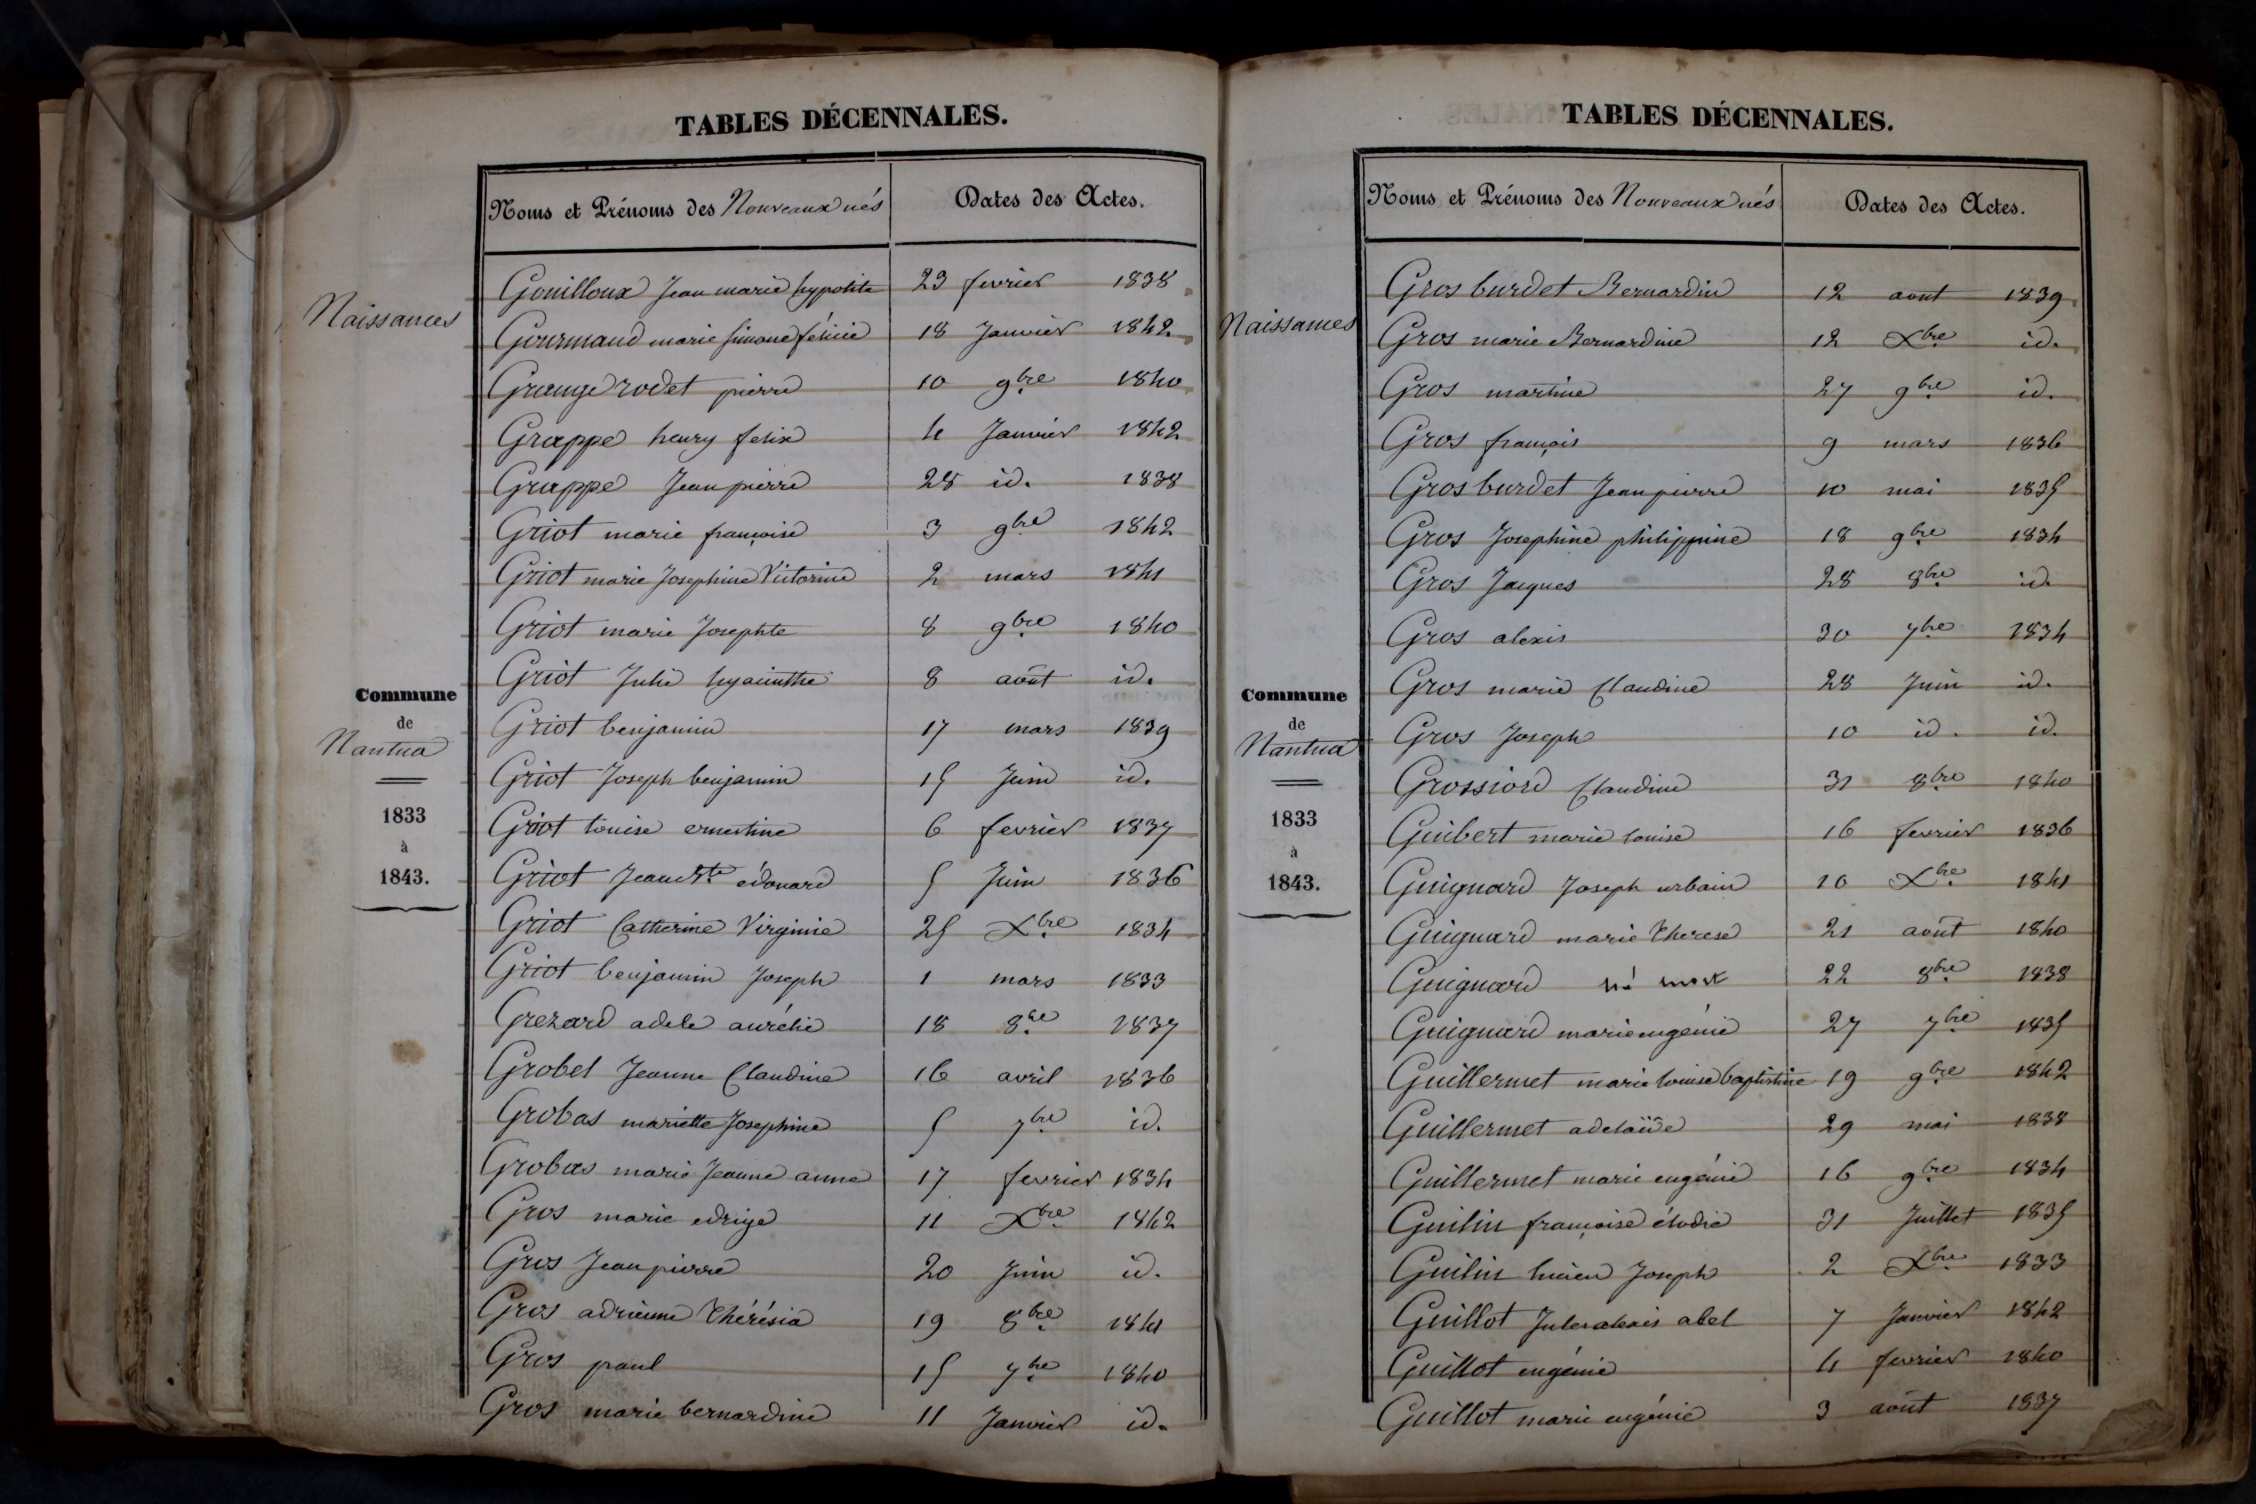 TABLES DÉCENNALES.
Noms et Prénoms des Nouveaux nés Dates des Actes.
Naissances
Commune
de
Nantua
1833
à
1843.
Gouilloux Jean marie hypolite 23 fevrier 1838
Gourmand marie simone félicie 18 Janvier 1842
Grange rodet pierre 10 9bre 1840
Grappe henry felix 4 Janvier 1842
Grappe Jean pierre 28 id. 1838
Griot marie françoise 3 9bre 1842
Griot marie Josephine Victorine 2 mars 1841
Griot marie Josephte 8 9bre 1840
Griot Julie hyacinthe 8 août id.
Griot benjamin 17 mars 1839
Griot Joseph benjamin 15 Juin id.
Griot louise ernestine 6 fevrier 1837
Griot Jean Bte édouard 5 Juin 1836
Griot Catherine Virginie 25 Xbre 1834
Griot benjamin Joseph 1 mars 1833
Grezard adele aurélie 18 8bre 1837
Grobel Jeanne Claudine 16 avril 1836
Grobas mariette Josephine 5 7bre id.
Grobas marie Jeanne anne 17 fevrier 1834
Gros marie edrige 11 Xbre 1842
Gros Jean pierre 20 Juin id.
Gros adrienne Thérésia 19 8bre 1841
Gros paul 15 7bre 1840
Gros marie bernardine 11 Janvier id.
TABLES DÉCENNALES.
Noms et Prénoms des Nouveaux nés Dates des Actes.
Naissances
Commune
de
Nantua
1833
à
1843.
Gros burdet Bernardin 12 aout 1839
Gros marie Bernardine 12 Xbre id.
Gros martine 27 9bre id.
Gros françois 9 mars 1836
Gros burdet Jean pierre 10 mai 1835
Gros Josephine philippine 18 9bre 1834
Gros Jacques 28 8bre id.
Gros alexis 30 7bre 1834
Gros marie Claudine 28 Juin id.
Gros Joseph 10 id. id.
Grossiord Claudine 31 8bre 1840
Guibert marie louise 16 fevrier 1836
Guignard Joseph urbain 10 Xbre 1841
Guignard marie Therese 21 août 1840
Guignard né mort 22 8bre 1838
Guignard marie eugénie 27 7bre 1835
Guillermet marie louise baptistine 19 9bre 1842
Guillermet adelaïde 29 mai 1838
Guillermet marie eugénie 16 9bre 1834
Guilin françoise élodie 31 Juillet 1835
Guilin lucien Joseph 2 Xbre 1833
Guillot Jules alexis abel 7 Janvier 1842
Guillot eugénie 4 fevrier 1840
Guillot marie eugénie 3 août 1837